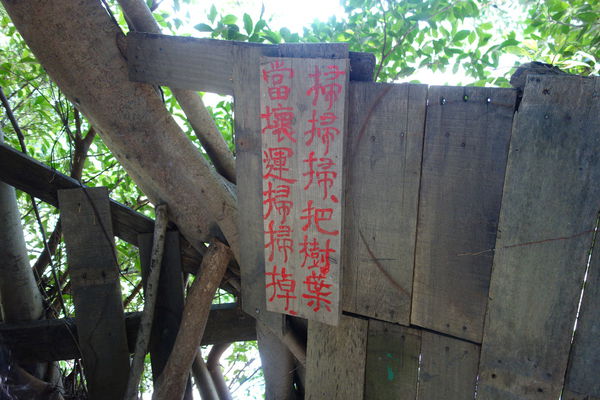 掃掃掃、把樹葉
當壞運掃掃掉